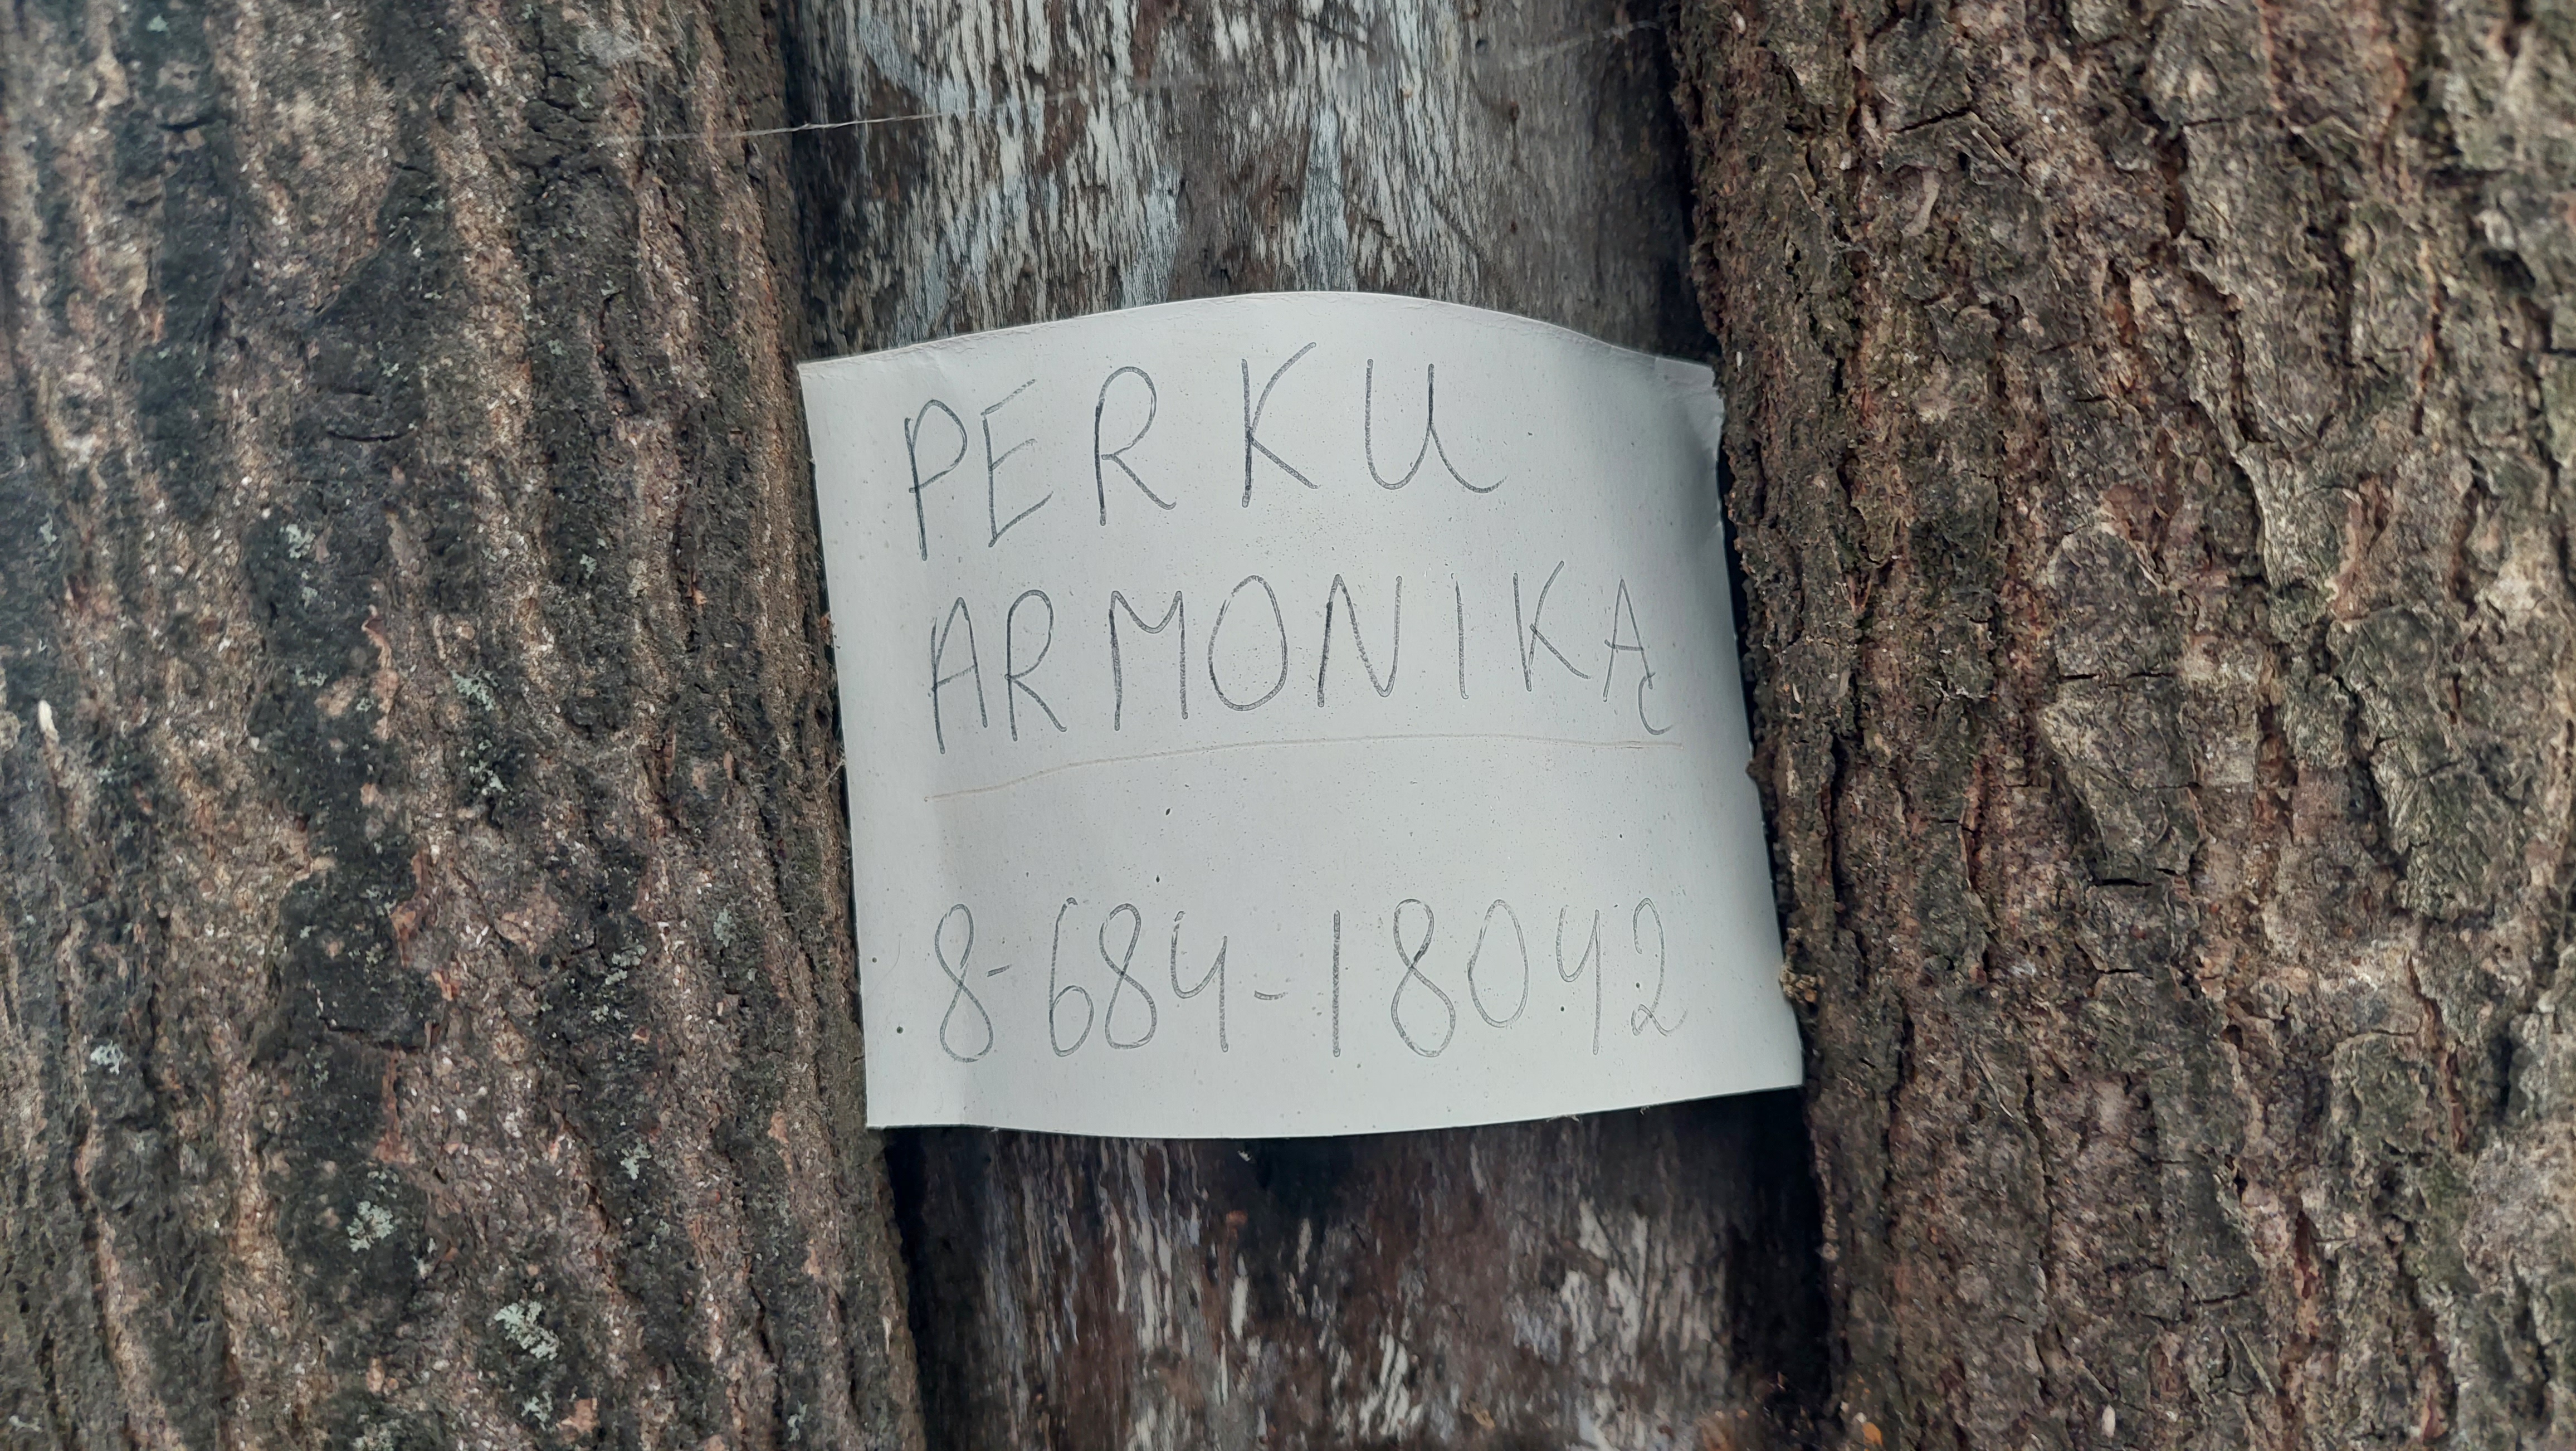 PERKU
ARMONIKĄ
8-684-18042